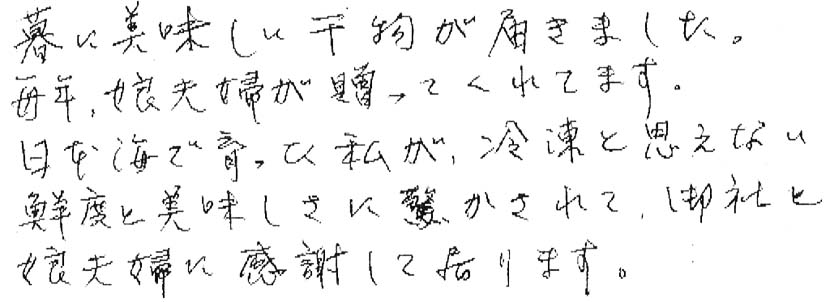 暮に美味しい干物が届きました。
毎年、娘夫婦が贈ってくれてます。
日本海で育った私が、冷凍と思えない
鮮度と美味しさに驚かされて、御社と
娘夫婦に感謝して居ります。